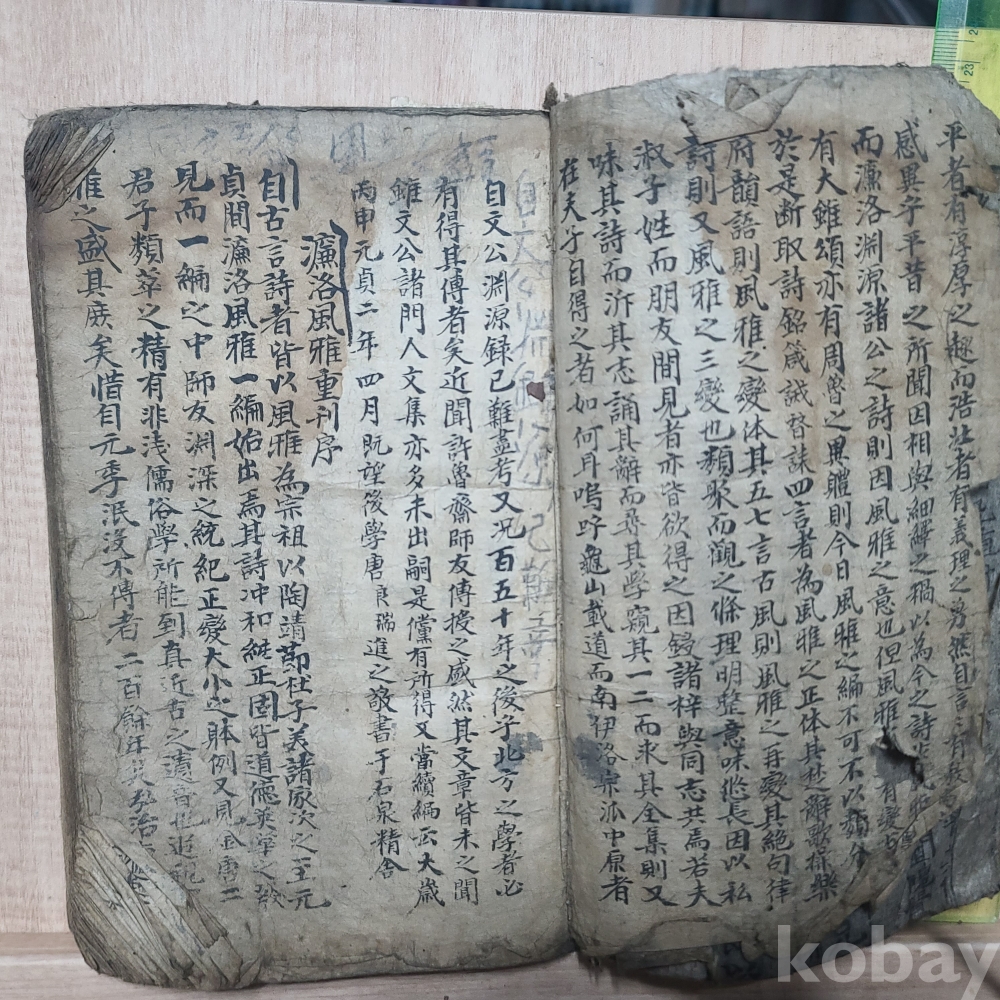 平者有淳厚之趣而浩壯者有義理之
感異乎平昔之所聞因相與細繹之
而濂洛淵源諸公之詩則因風雅之意也但風雅有變
有大雅頌亦有周魯之異體則今日風雅之編不可不以類分
於是斷取詩銘箴誡贊誄四言者為風雅之正体其楚辭歌操樂
府韻語則風雅之變体其五七言古風則風雅之再變其絕句律
詩則又風雅之三變也類聚而觀之條理明整意味悠長因以私
淑子姓而朋友間見者亦皆欲得之因鋟諸梓與同志共焉若夫
味其詩而泝其志誦其辭而尋其學窺其一二而求其全集則又
在夫子自得之者如何耳嗚呼龜山載道而南伊洛宗派中原者
自文公淵源録已難盡考又况百五十年之後乎北方之學者必
有得其傳者矣近聞許魯齋師友傳授之盛然其文章皆未之聞
雖文公諸門人文集亦多未出嗣是儻有所得又當續編云大歲
丙申元貞二年四月既望後學唐良瑞進之敬書于石泉精舍
濂洛風雅重刊序
自古言詩者皆以風雅為宗祖以陶靖節杜子美諸家次之王元
貞間濂洛風雅一編始出焉其詩冲和純正固皆道德英華之發
見而一編之中師友淵深之統紀正變大小之體例又見金唐二
君子類萃之精有非浅儒俗學所能到真近古之遺音也
雅之盛其庶矣惜自元季泯沒不傳者二百餘年弘治
kobay